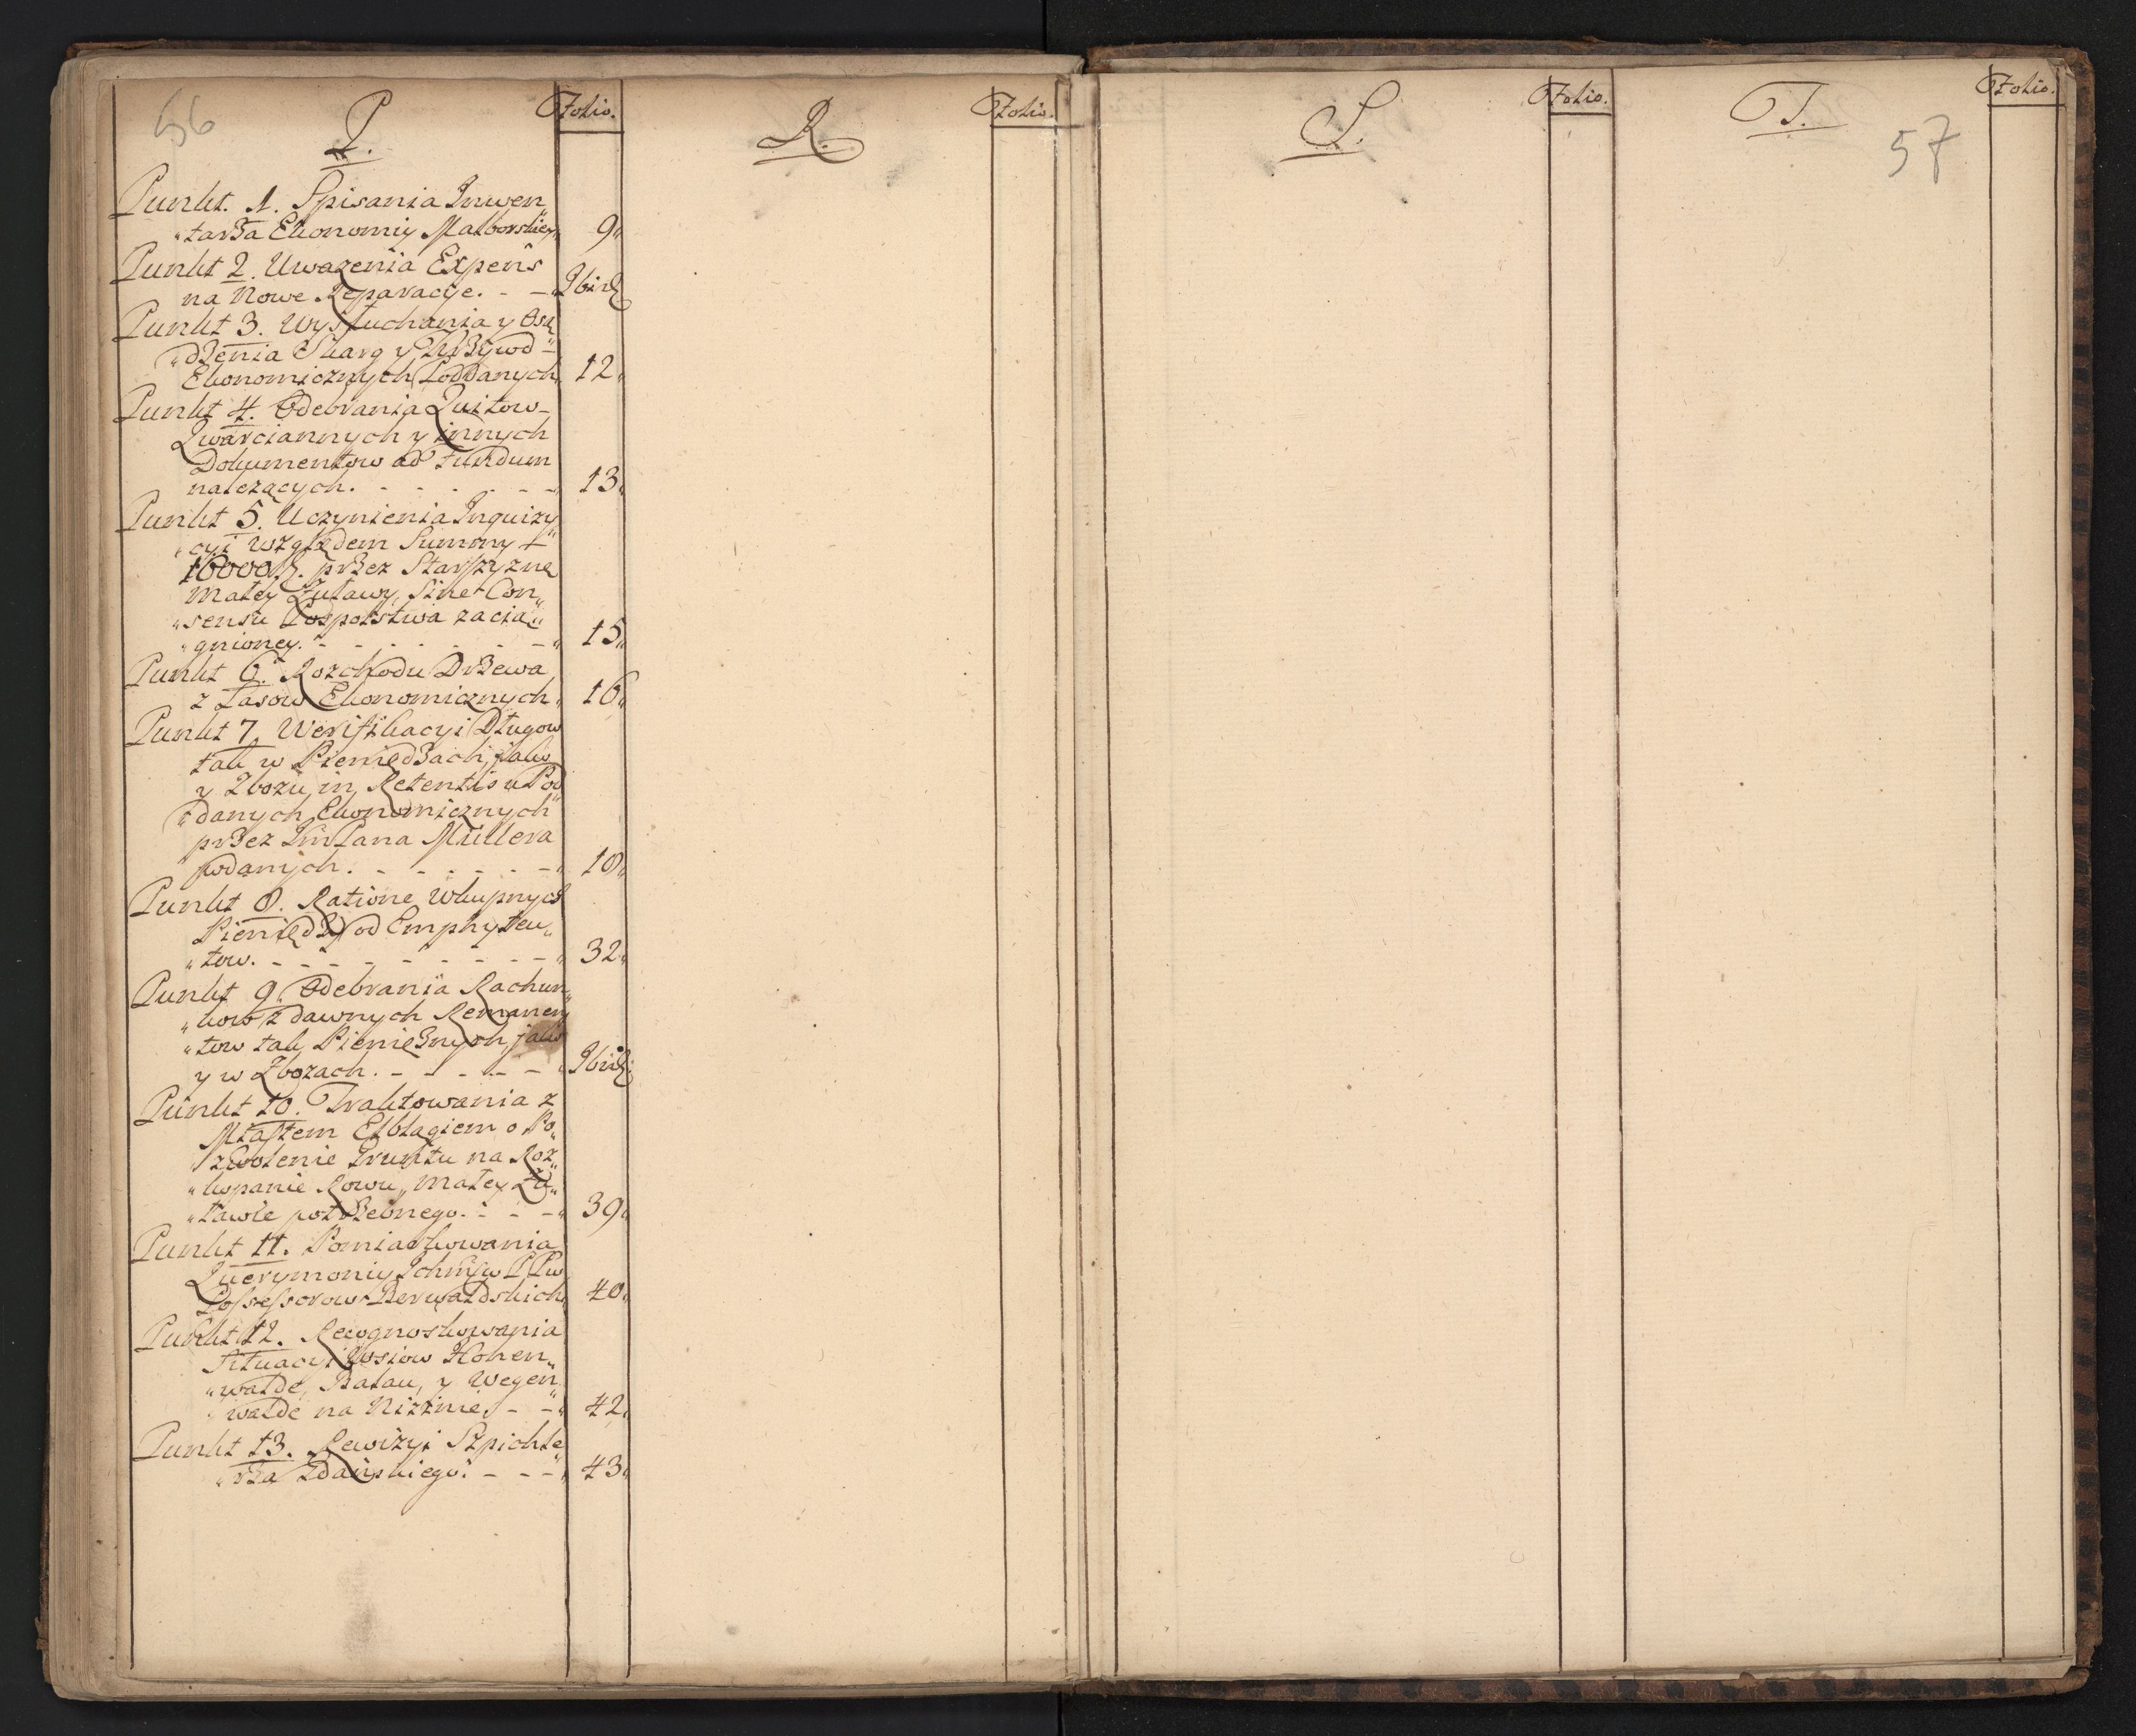 56
P.
Folio.
Punkt. 1. Spisania Inwen„
„tarza Ekonomiy Malborskiey„ 9„
Punkt 2. Uwazenia Expens
na Nowe Reparacye. - - Ibid:
Punkt 3. Wysłuchania y Osą„
„dzenia Skarg y Krzywd -
Ekonomicznych Poddanych„ 12„
Punkt 4. Odebrania Quitow -
Qwarciannych y innych
Dokumentow ad Fundum
należących. - - - - - - „ 13„
Punkt 5. Uczynienia Inquizy„
„cyi względem Summy f
10000 przez Starszyznę
Małey Żuławy, Sine Con„
„sensu Pospolstwa zacią„
„gnioney. - - - - - - - „ 15„
Punkt 6. Rozchodu Drzewa
z Lasow Ekonomicznych„ 16„
Punkt 7. Weryfikacyi Długow
tak w Pieniędzach, jako
y Zbożu, in Retentis u Pod„
„danych Ekonomicznych
przez Pana Müllera
podanych. - - - - - - „ 18„
Punkt 8. Ratione Wkupnych
Pieniędzy od Emphyteu„
„tow. - - - - - - - - - „ 32„
Punkt 9. Odebrania Rachun„
„kow z dawnych Remanen„
„tow tak Pieniężnych, jako
y w Zbożach. - - - - - „ Ibid:
Punkt 10. Traktowania z
Miastem Elblągiem o Po„
zwolenie Gruntu na Roz„
„kopanie Rowu, Małey Żu„
„ławie potrzebnego. - - - „ 39„
Punkt 11. Pomiarkowania
Querymoniy
Possessorow Berwaldskich„ 40„
Punkt 12. Rekognoskowania
Situacyi Wsiow Hohen„
„walde, Balau, y Wegen„
„walde na Niżinie. - - „ 42„
Punkt 13. Rewizyi Szpichle„
„rza Gdańskiego. - - - „ 43„
R.
Folio.
S.
Folio.
T.
Folio.
57